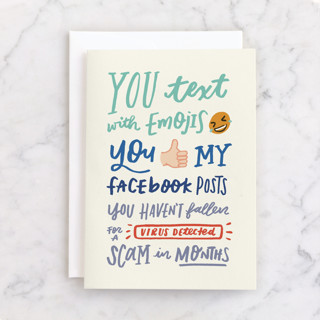 YOU text
with EMOJIS
YOU MY
FACEBOOK POSTS
YOU HAVEN'T fallen
FOR A VIRUS Detected
SCAM in MONTHS